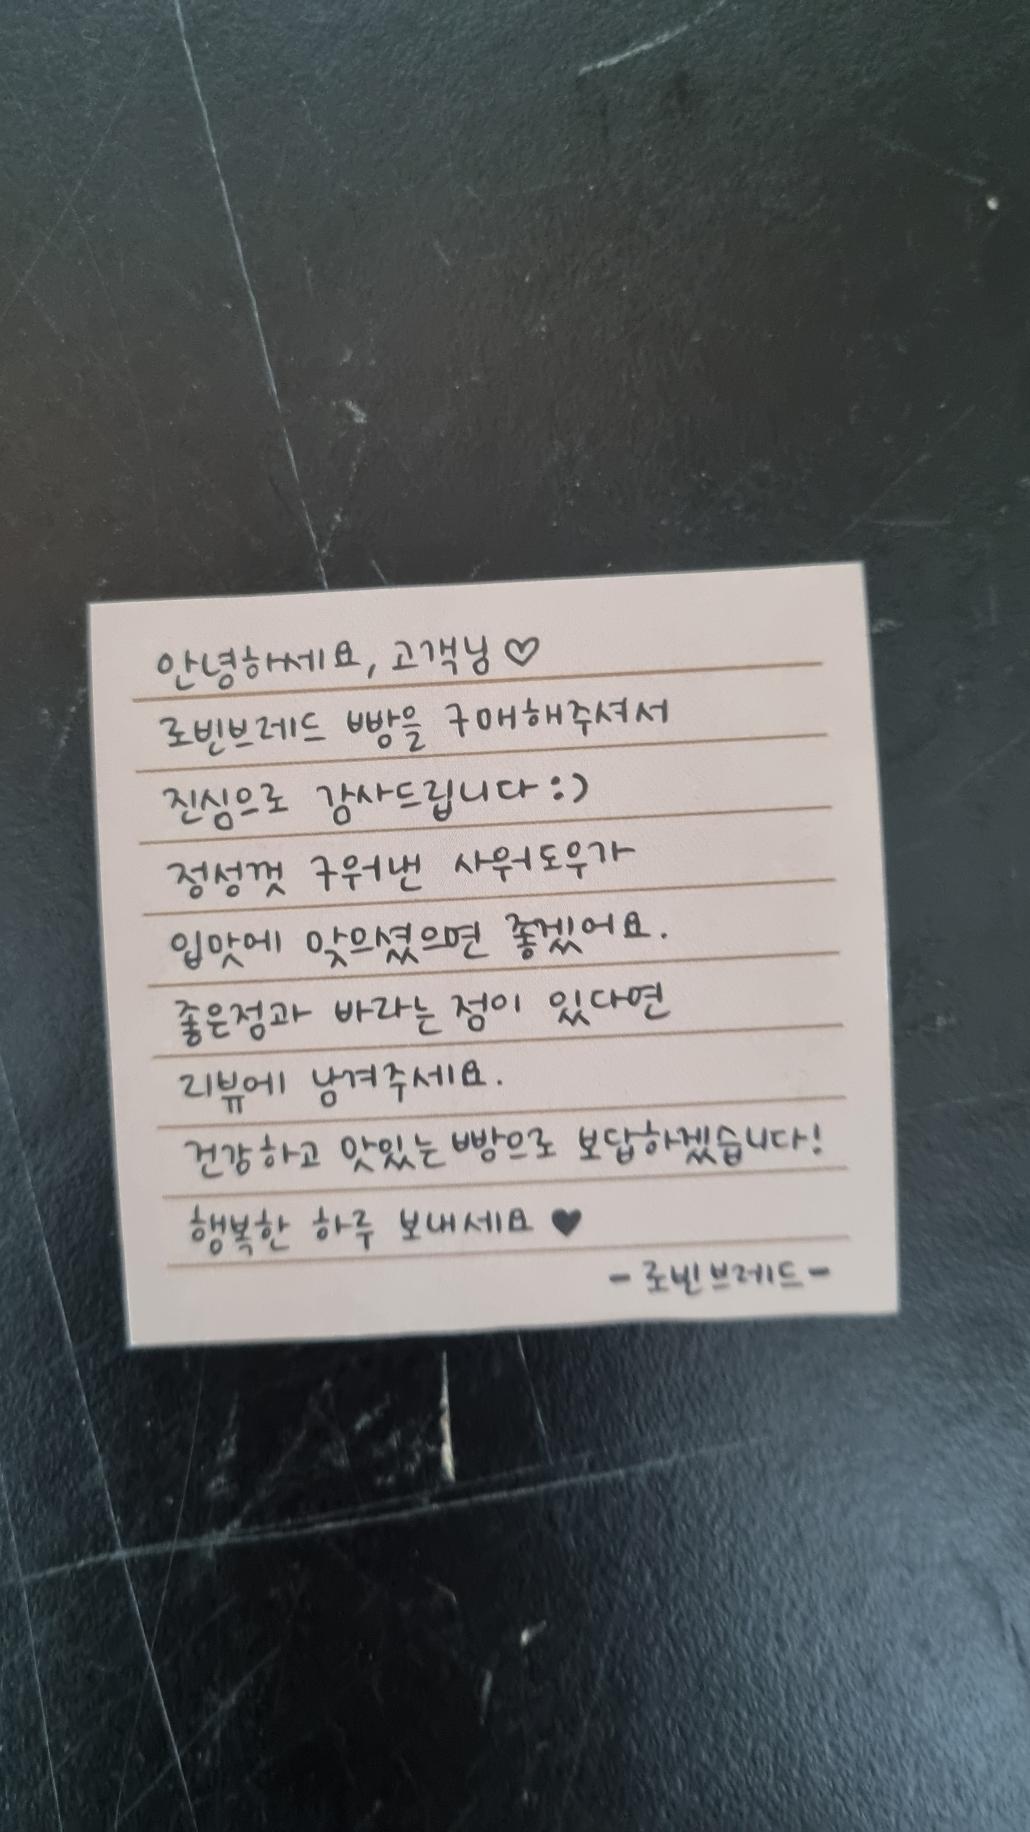 안녕하세요, 고객님 ♡
로빈브레드 빵을 구매해주셔서
진심으로 감사드립니다 :)
정성껏 구워낸 사워도우가
입맛에 맞으셨으면 좋겠어요.
좋은점과 바라는 점이 있다면
리뷰에 남겨주세요.
건강하고 맛있는 빵으로 보답하겠습니다!
행복한 하루 보내세요 ♥
- 로빈브레드 -